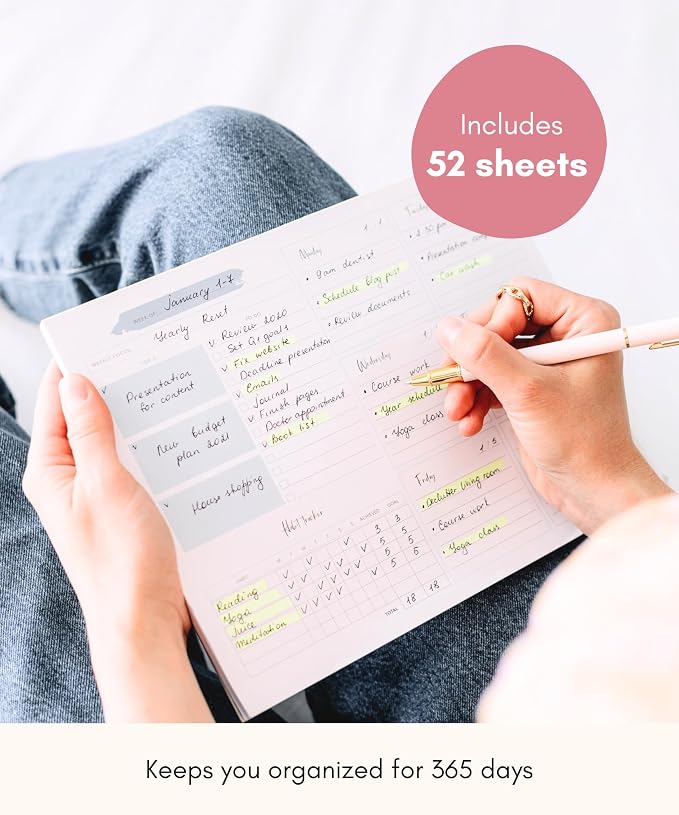 Includes
52 sheets
WEEK OF: January 1-7
Yearly Reset
WEEKLY FOCUS
Presentation
for content
New budget
plan 2021
House shopping
TO DO
Review 2020
Set Q1 goals
Fix website
Deadline presentation
Emails
Journal
Finish pages
Doctor appointment
Book list
Monday 1.1
9am dentist
Schedule blog post
Review documents
Presentation
Car wash
Wednesday
Course work
Year schedule
Yoga class
Friday 1.5
Declutter living room
Course work
Yoga class
Habit Tracker
HABIT M T W T F S S ACHIEVED GOAL
Reading 3 3
Yoga 5 5
Juice 5 5
Meditation 5 5
TOTAL 18 18
Keeps you organized for 365 days